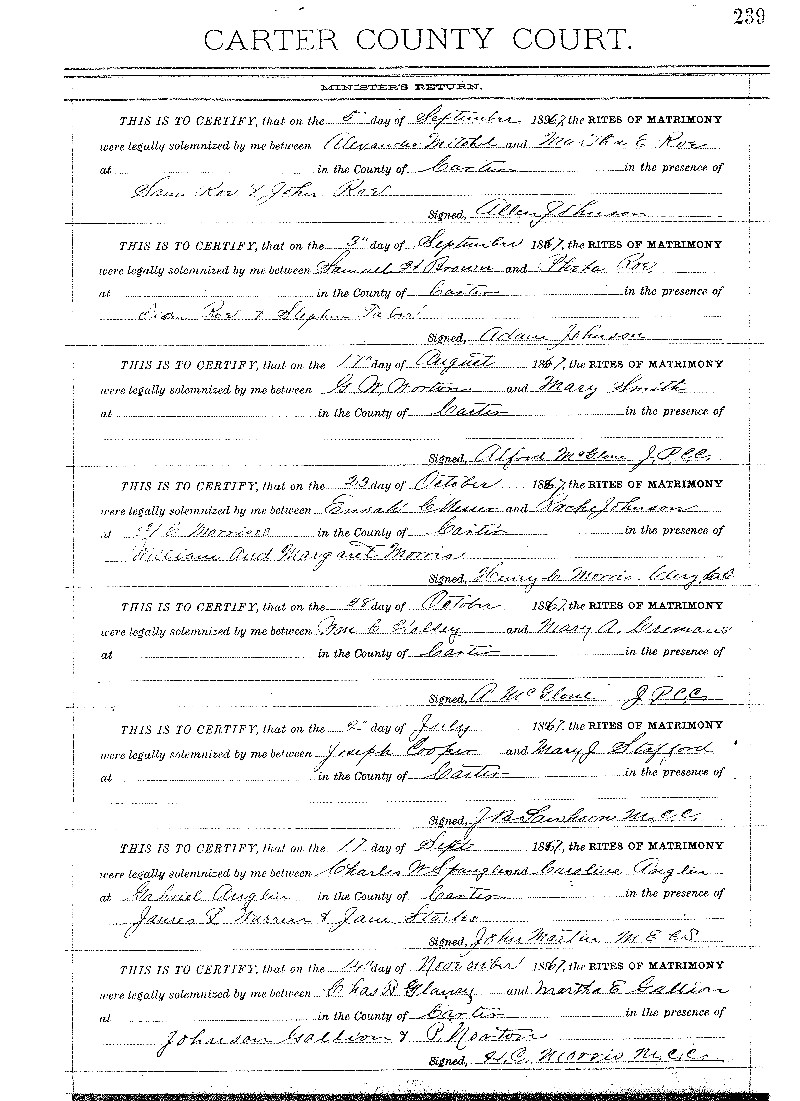 239
CARTER COUNTY COURT.
MINISTER'S RETURN.
THIS IS TO CERTIFY, that on the 5" day of September 1867, the RITES OF MATRIMONY
were legally solemnized by me between Alexander Mitchel and Martha E Roe
at in the County of Carter in the presence of
Sam Roe & John Roe
Signed, Allen Johnson
THIS IS TO CERTIFY, that on the 3" day of September 1867, the RITES OF MATRIMONY
were legally solemnized by me between Samuel H Brown and Phoba Roe
at in the County of Carter in the presence of
Roe & Stephen
Signed, Adam Johnson
THIS IS TO CERTIFY, that on the 17" day of August 1867, the RITES OF MATRIMONY
were legally solemnized by me between G W and Mary Smith
at in the County of Carter in the presence of
Signed, Alford McGlone J.P.C.C.
THIS IS TO CERTIFY, that on the 23 day of October 1867, the RITES OF MATRIMONY
were legally solemnized by me between C and Johnson
at in the County of Carter in the presence of
William and Margaret Morris
Signed, Henry C Morris
THIS IS TO CERTIFY, that on the 28" day of October 1867, the RITES OF MATRIMONY
were legally solemnized by me between Wm C and Mary A.
at in the County of Carter in the presence of
Signed, A McGlone J P C C
THIS IS TO CERTIFY, that on the 2" day of July 1867, the RITES OF MATRIMONY
were legally solemnized by me between Joseph Cooper and Mary J Stafford
at in the County of Carter in the presence of
Signed, J B M.C.C.
THIS IS TO CERTIFY, that on the 17 day of Sept 1867, the RITES OF MATRIMONY
were legally solemnized by me between Charles W Spangler and Caroline Anglin
at Gabriel Anglin in the County of Carter in the presence of
James Warren & Jane
Signed, John Martin M E C S
THIS IS TO CERTIFY, that on the 14" day of November 1867, the RITES OF MATRIMONY
were legally solemnized by me between Chas B and Martha E Gallion
at in the County of Carter in the presence of
Johnson Gallion & P. Norton
Signed, H. C. Morris M.C.C.